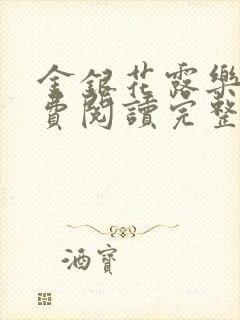 金銀花露樂
費閱讀完整
酒寶